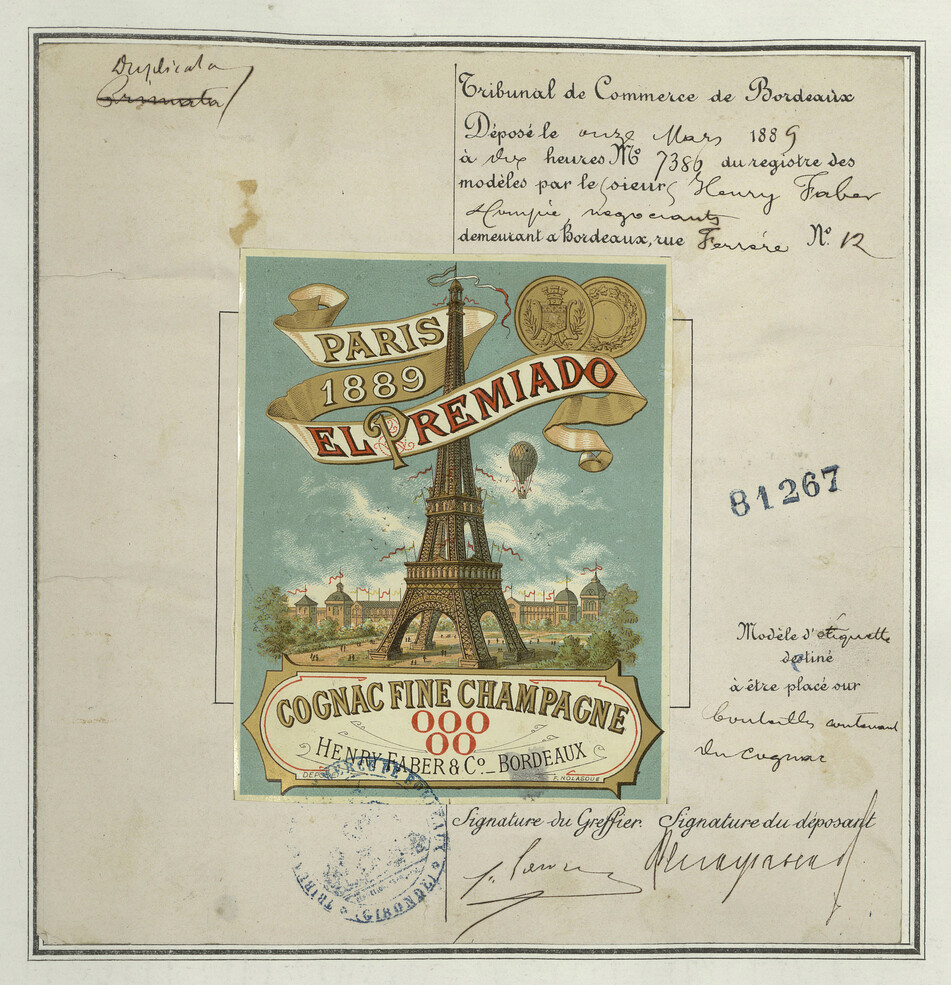 Duplicata
Primata
Tribunal de Commerce de Bordeaux
Déposé le onze Mars 1889
à dix heures No 7386 du registre des
modèles par le sieur Henry Faber
& Compie, negociants
demeurant à Bordeaux, rue Ferrère No. 12
PARIS
1889
EL PREMIADO
81267
Modèle d'étiquette
destiné
à être placé sur
bouteilles contenant
du cognac
COGNAC FINE CHAMPAGNE
000
00
HENRY FABER & Co. BORDEAUX
DEPO
F. NOLASQUE
Signature du Greffier. Signature du déposant
(GIRONDE)